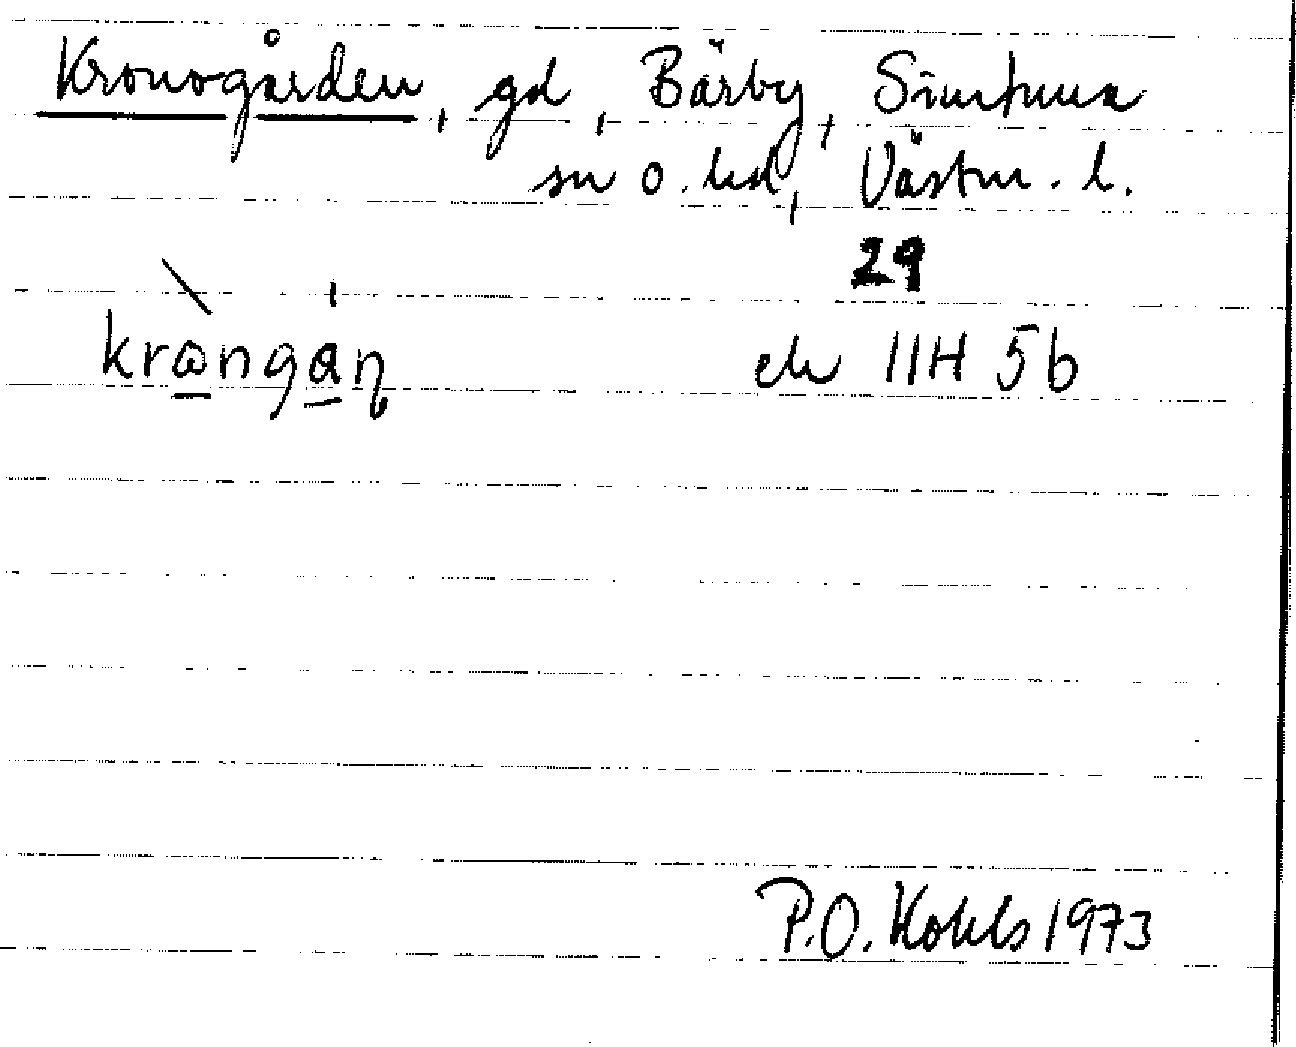 Kronogården, gd, Bärby, Simtuna
sn o. hd, Västm. l.
29
krangan
ek 11H 5b
P.O. Kohls 1973